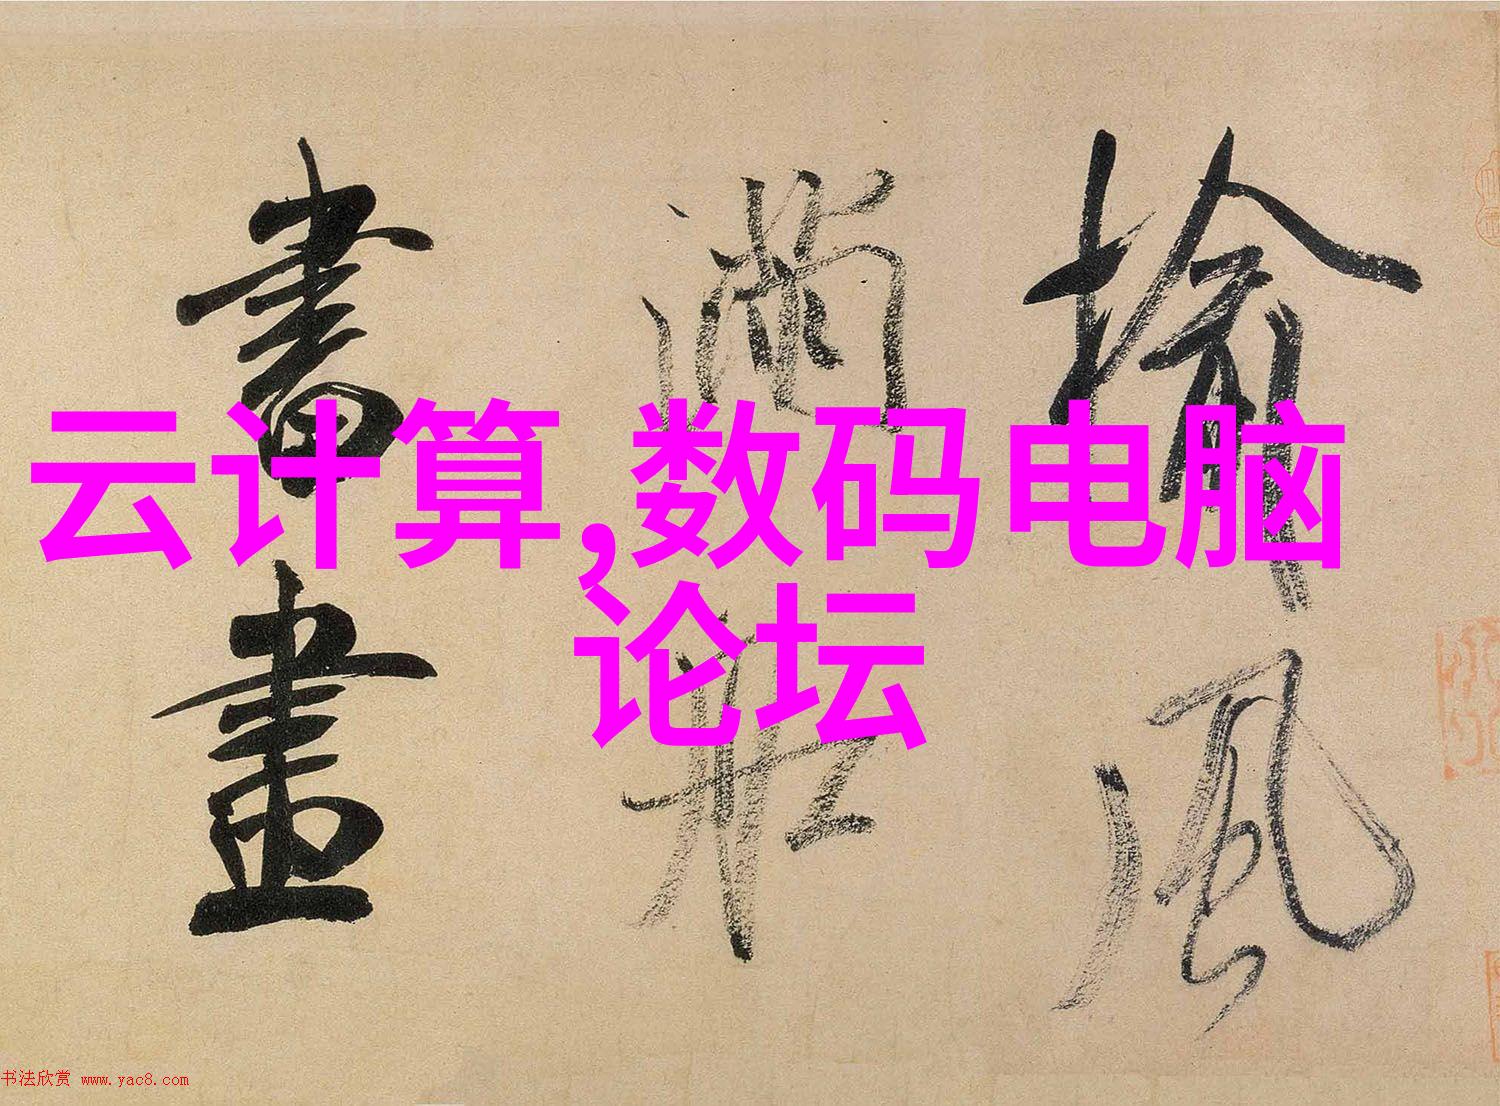 云计算,数码电脑
论坛
揄風
满船
書畫
书法欣赏 www.yac8.com